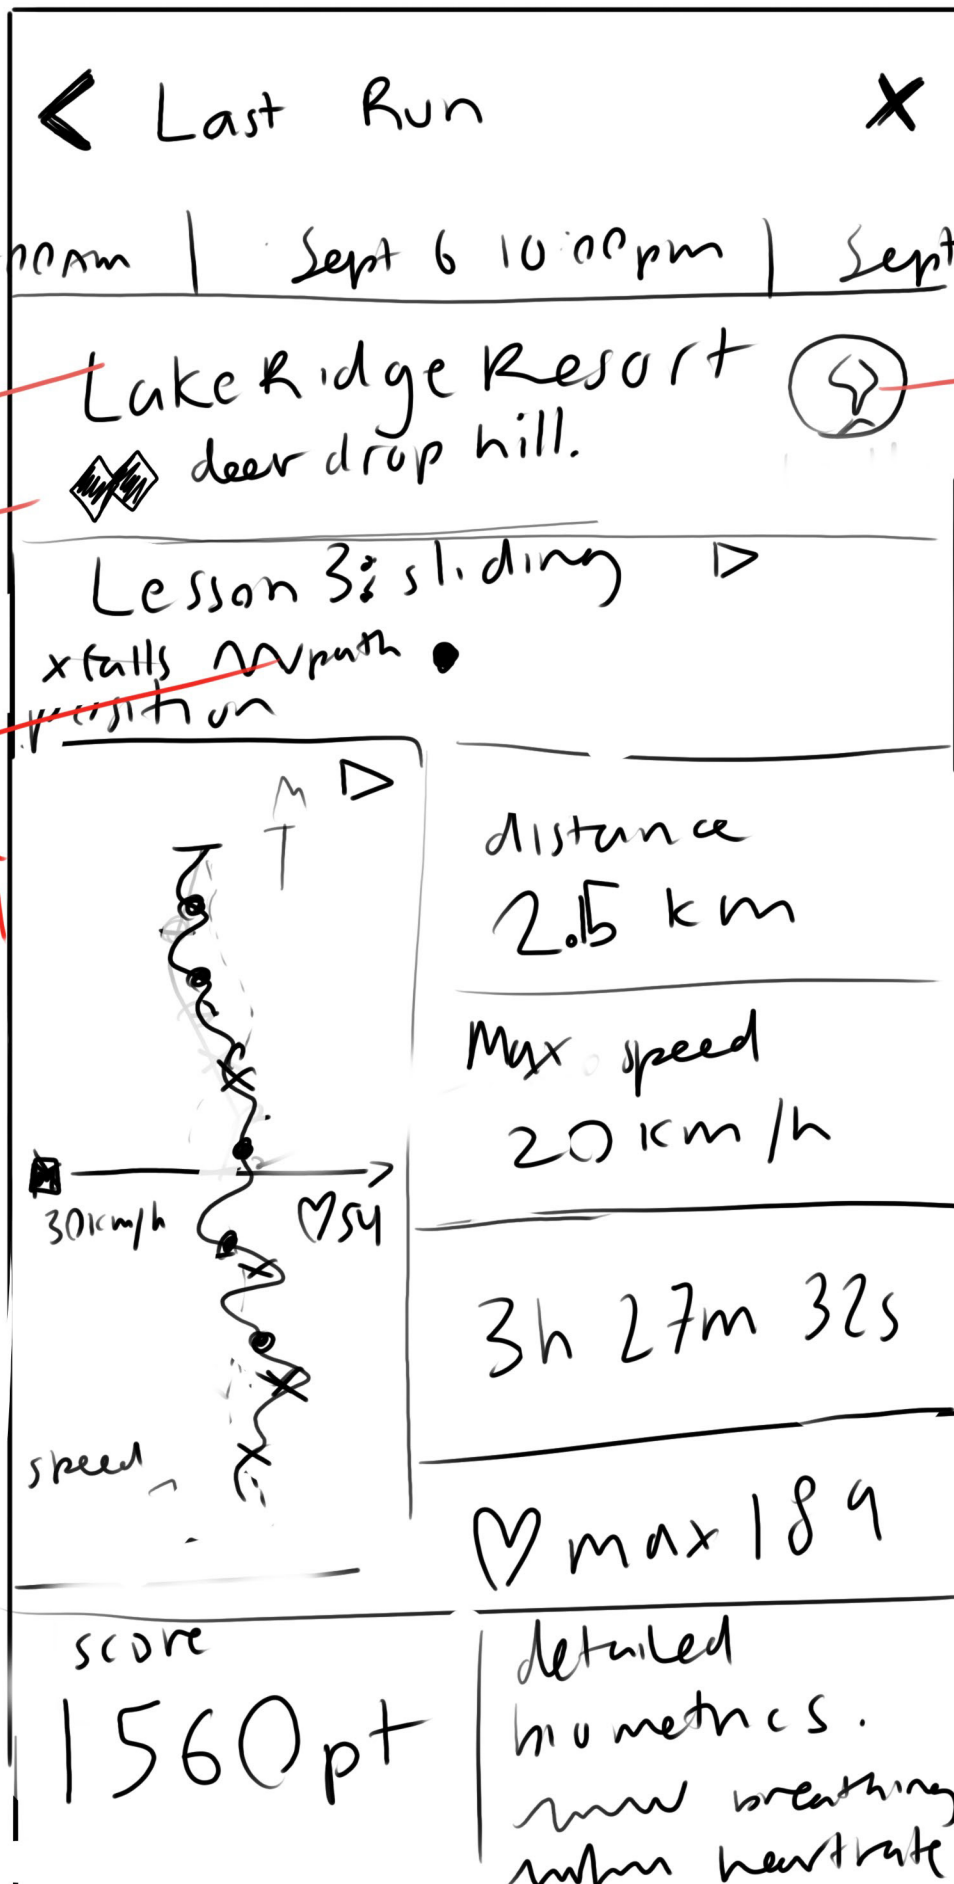 < Last Run X
00AM | Sept 6 10:00pm | Sept
Lake Ridge Resort
deer drop hill.
Lesson 3: sliding
x falls path
position
distance
2.5 km
Max speed
20 km/h
30km/h ♡54
3h 27m 32s
speed
♡ max 189
score
1560pt
detailed
biometrics.
breathing
heartrate